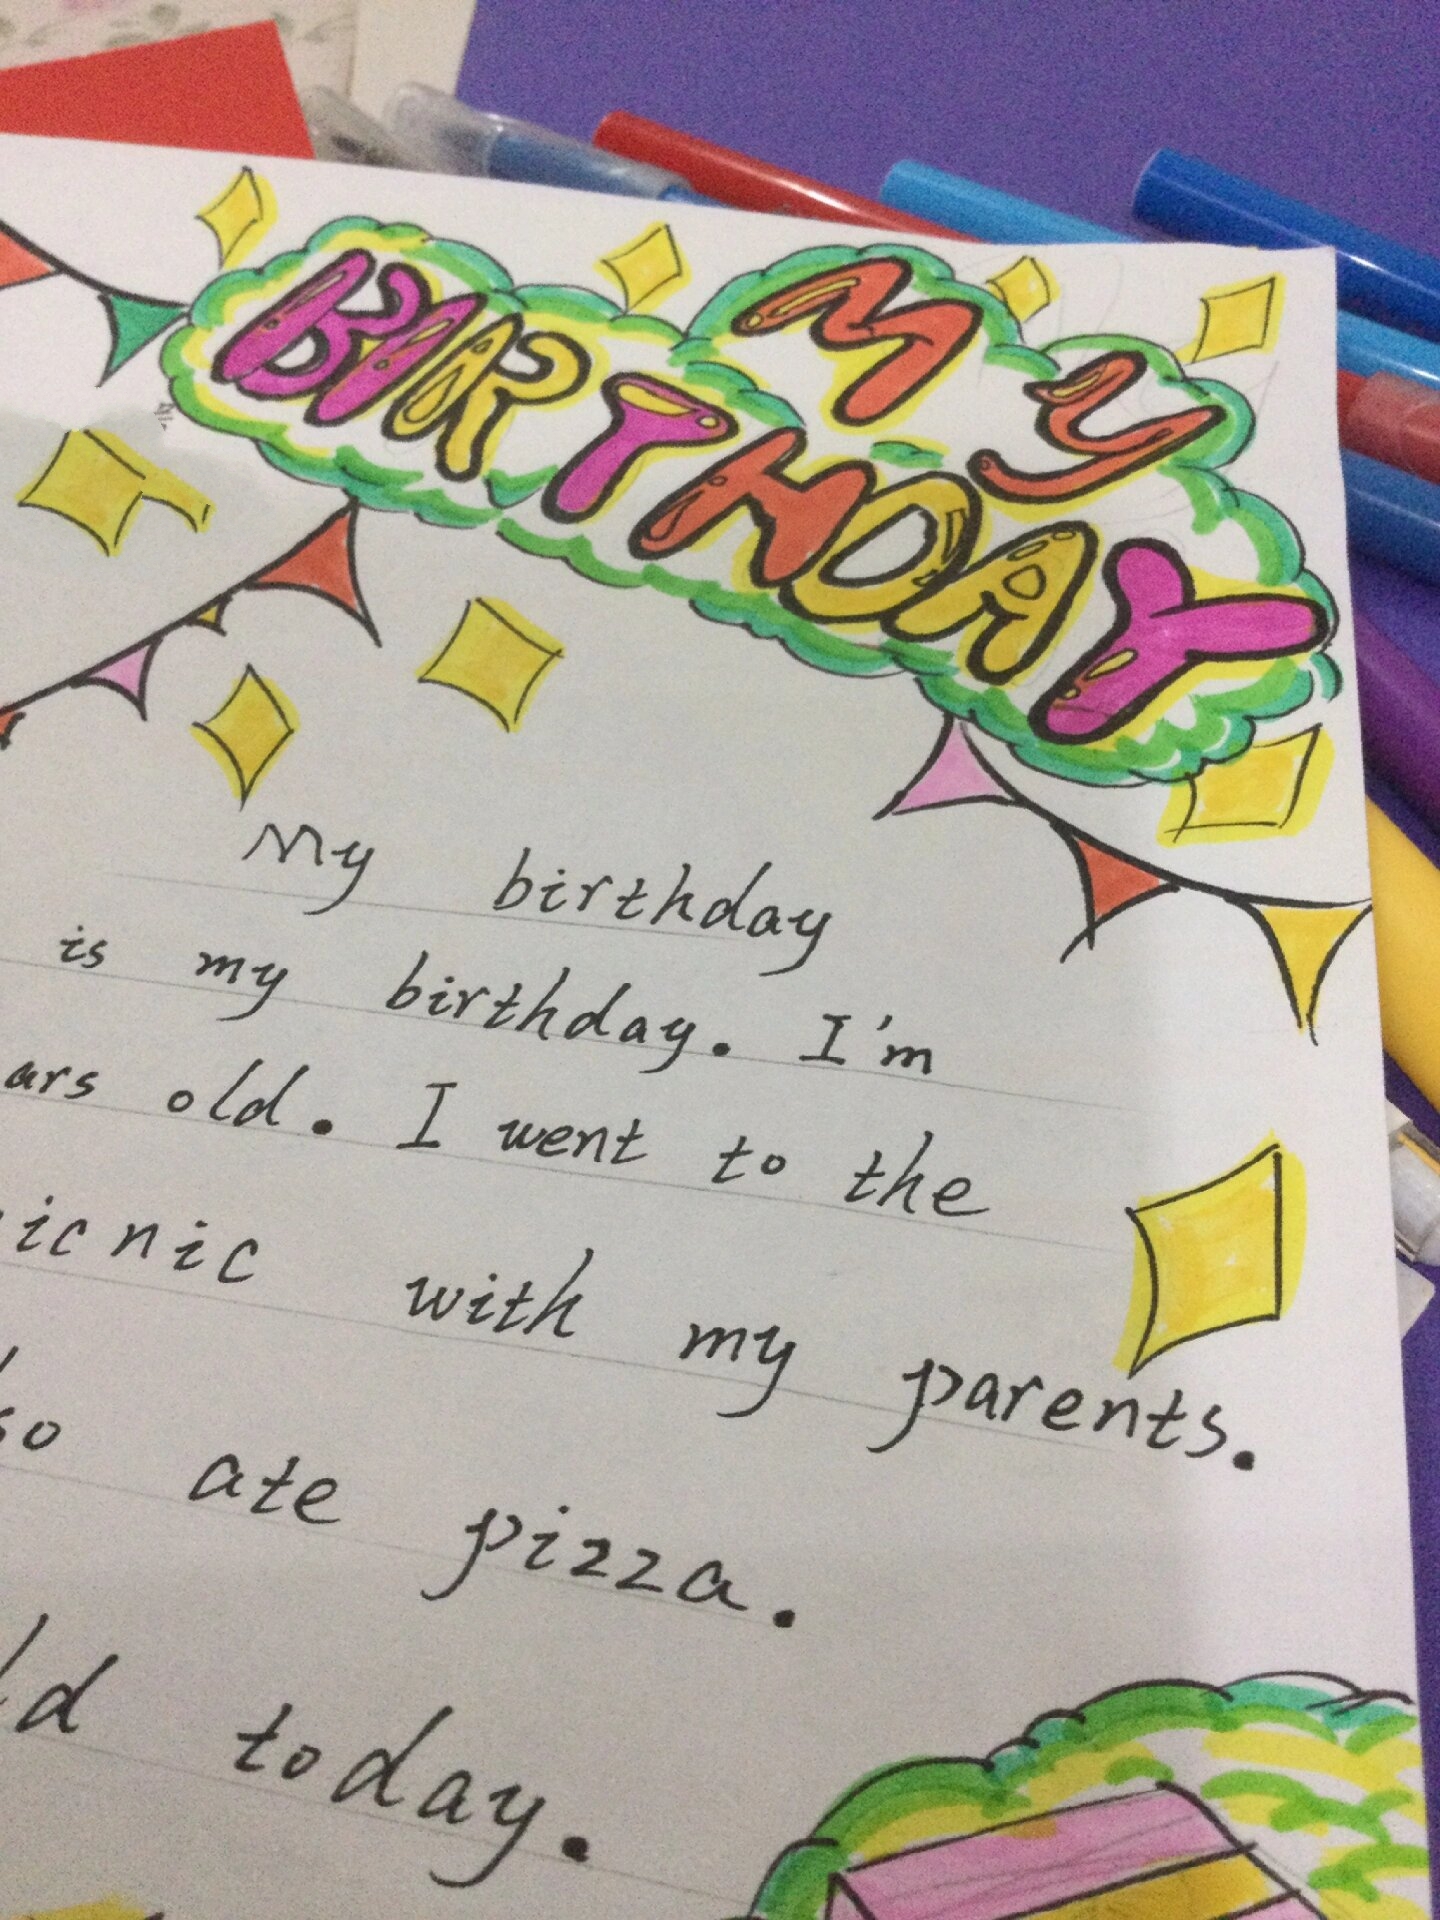 MY
BIRTHDAY
My birthday
is my birthday. I'm
ars old. I went to the
icnic with my parents.
so ate pizza.
ld today.